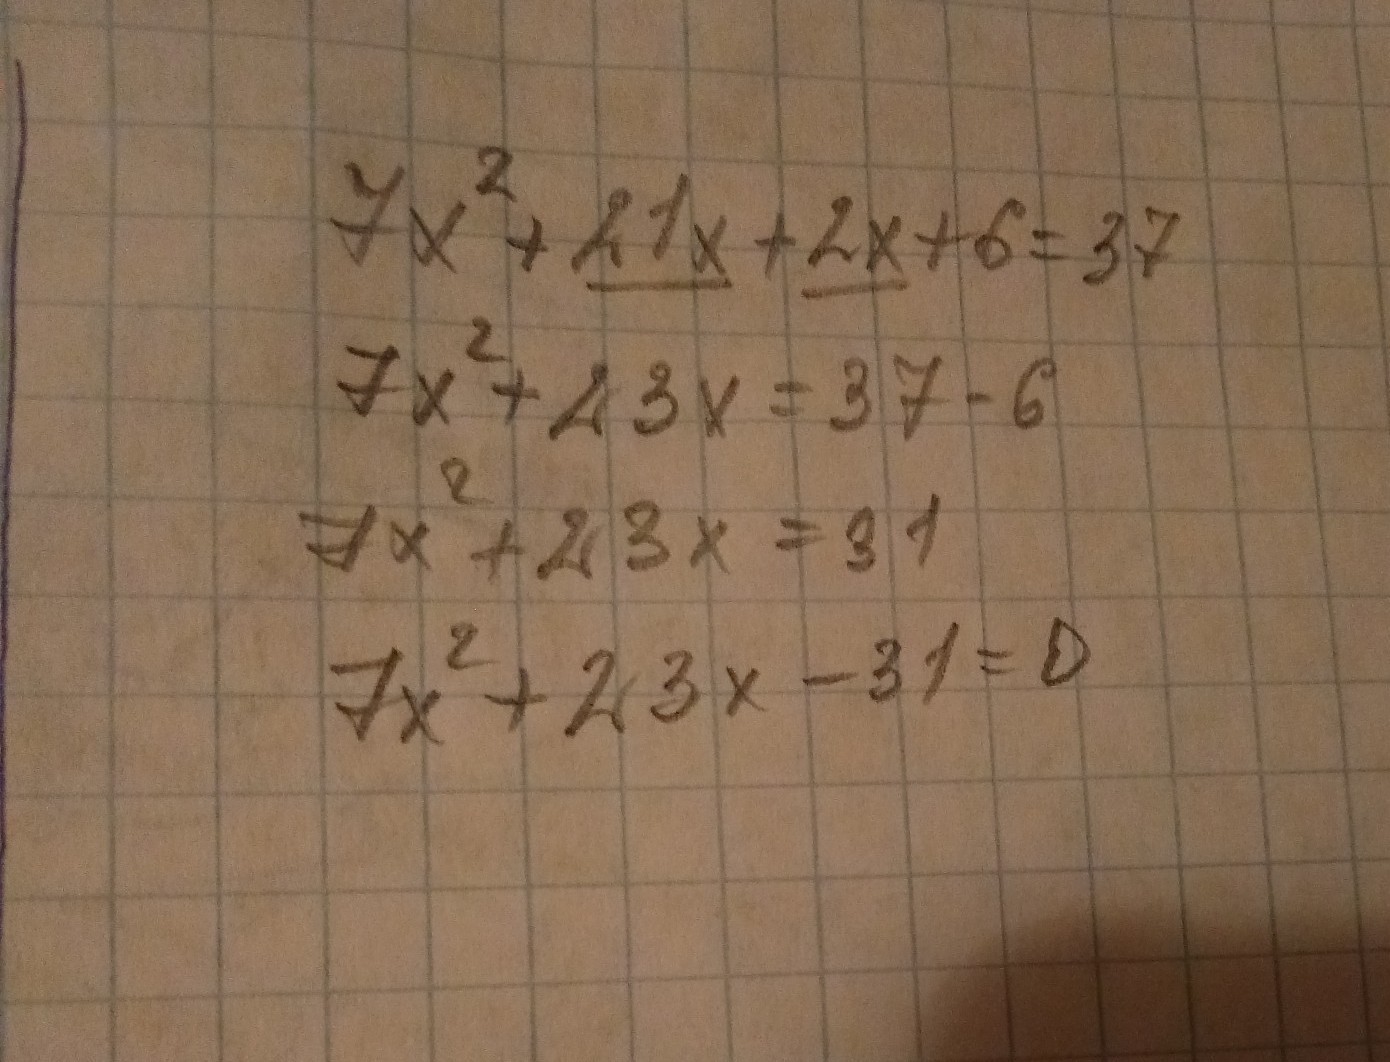 7x² + 21x + 2x + 6 = 37
7x² + 23x = 37 - 6
7x² + 23x = 31
7x² + 23x - 31 = 0